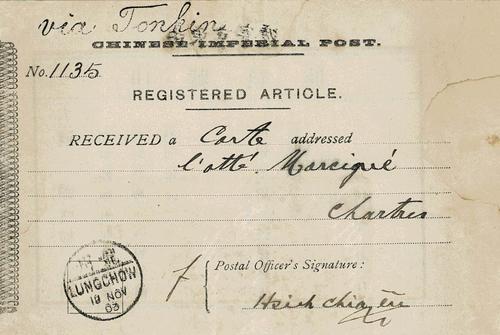 via Tonkin
CHINESE IMPERIAL POST.
No. 1135
REGISTERED ARTICLE.
RECEIVED a Carte addressed
Chartres
LUNGCHOW
19 NOV
03
Postal Officer's Signature:
Hsieh Chia